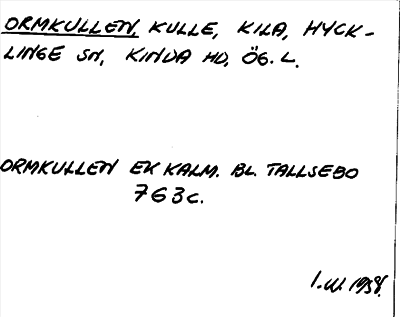 ORMKULLEN, KULLE, KILA, HYCK-
LINGE SN, KINDA HD, ÖG. L.
ORMKULLEN EK KALM. BL. TALLSEBO
763c.
1958.